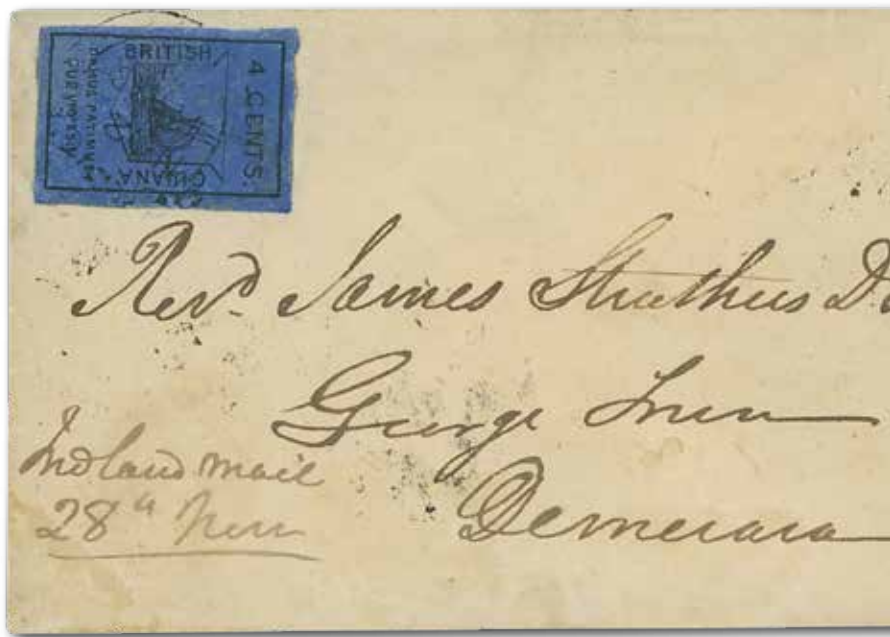 BRITISH
GUIANA
4 CENTS.
DAMUS PATIMUS
QUE VICISSIM
Revd. James Struthers D.
George Town
Demerara
Inland Mail
28"